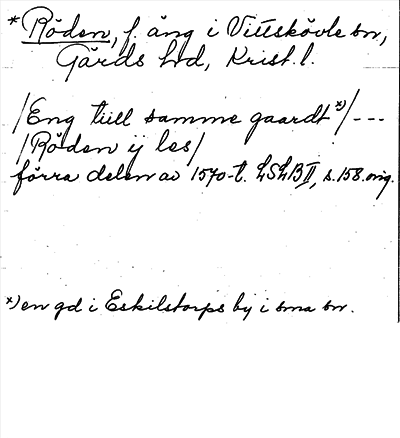 *Röden, f. äng i Vittskövle sn,
Gärds hd, Krist. l.
/Eng tiill samme gaardt*)/ ---
/Röden ij les/
förra delen av 1570-t. LSLB II, s. 158. orig.
*) en gd i Eskilstorps by i sma sn.